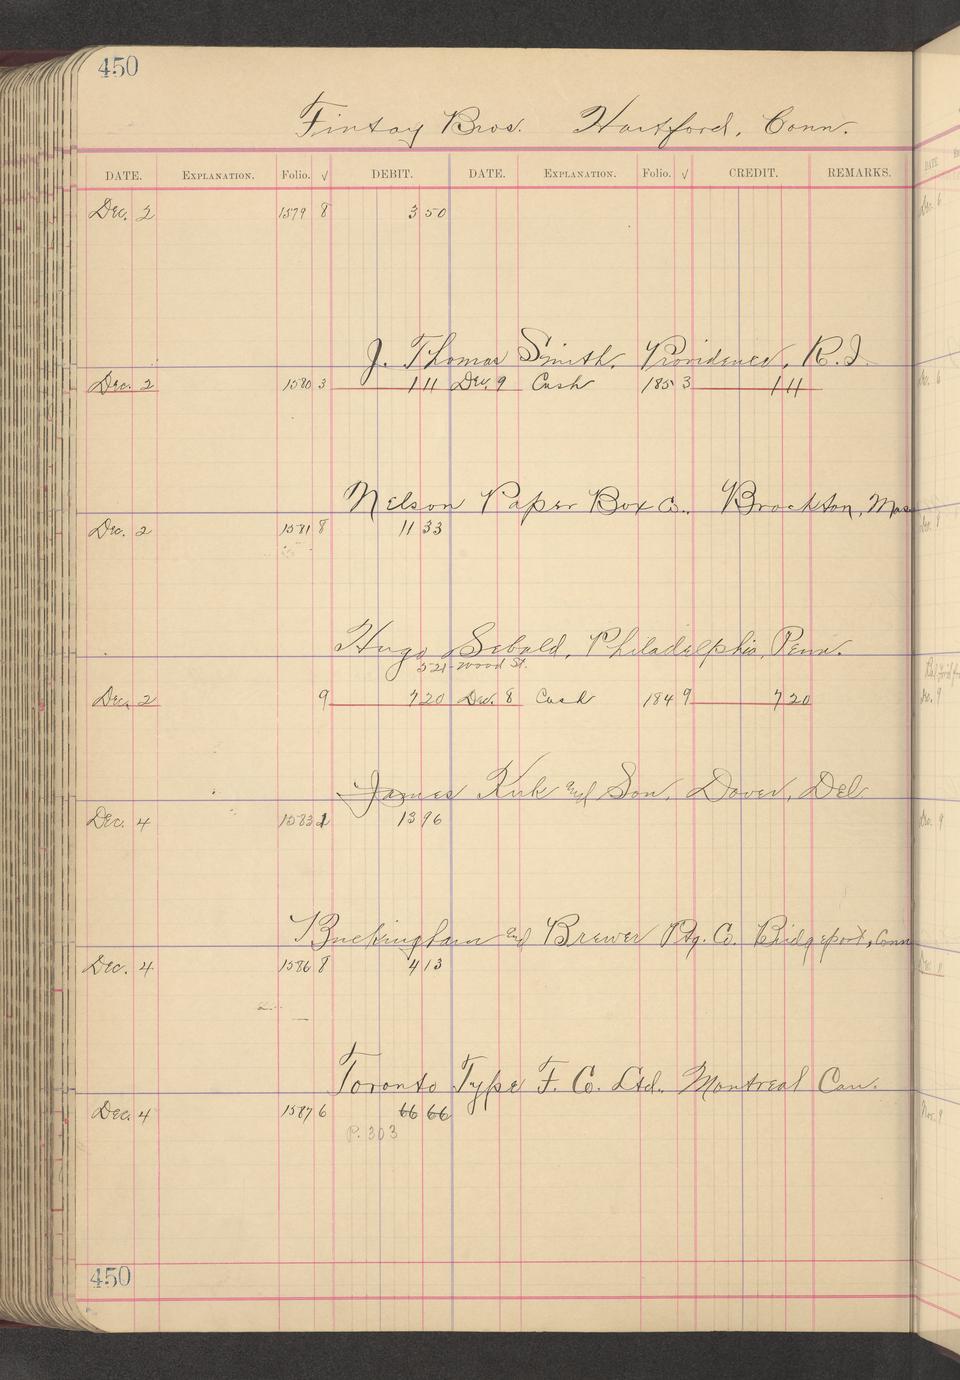 450
Finlay Bros. Hartford, Conn.
DATE. EXPLANATION. Folio. √ DEBIT. DATE. EXPLANATION. Folio. √ CREDIT. REMARKS.
Dec. 2 1579 8 3 50
J. Thomas Smith, Providence, R.I.
Dec. 2 1580 3 1 11 Dec. 9 Cash 185 3 1 11
Nelson Paper Box Co., Brockton, Mass
Dec. 2 1581 8 11 33
Hugo Sebald, Philadelphia, Penn.
521 Wood St.
Dec. 2 9 7 20 Dec. 8 Cash 184 9 7 20
James Kirk and Son, Dover, Del
Dec. 4 1583 13 96
Buckingham and Brewer Ptg. Co. Bridgeport, Conn
Dec. 4 1586 8 4 13
Toronto Type F. Co. Ltd. Montreal Can.
Dec. 4 1587 6 66 66
P. 303
450